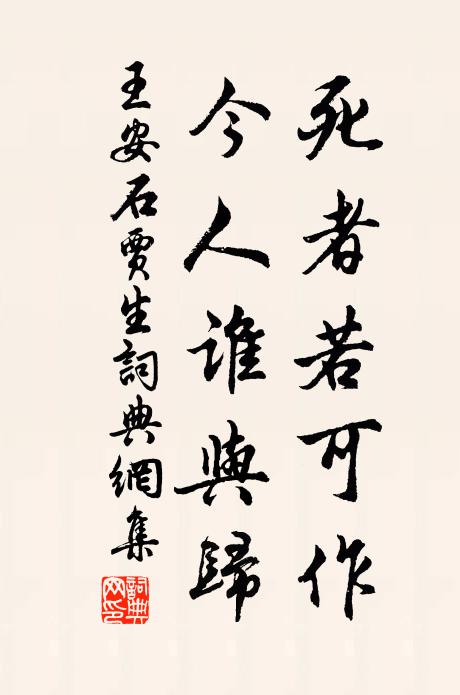 死者若可作
今人誰與歸
王安石賈生詞典網集
詞典網印